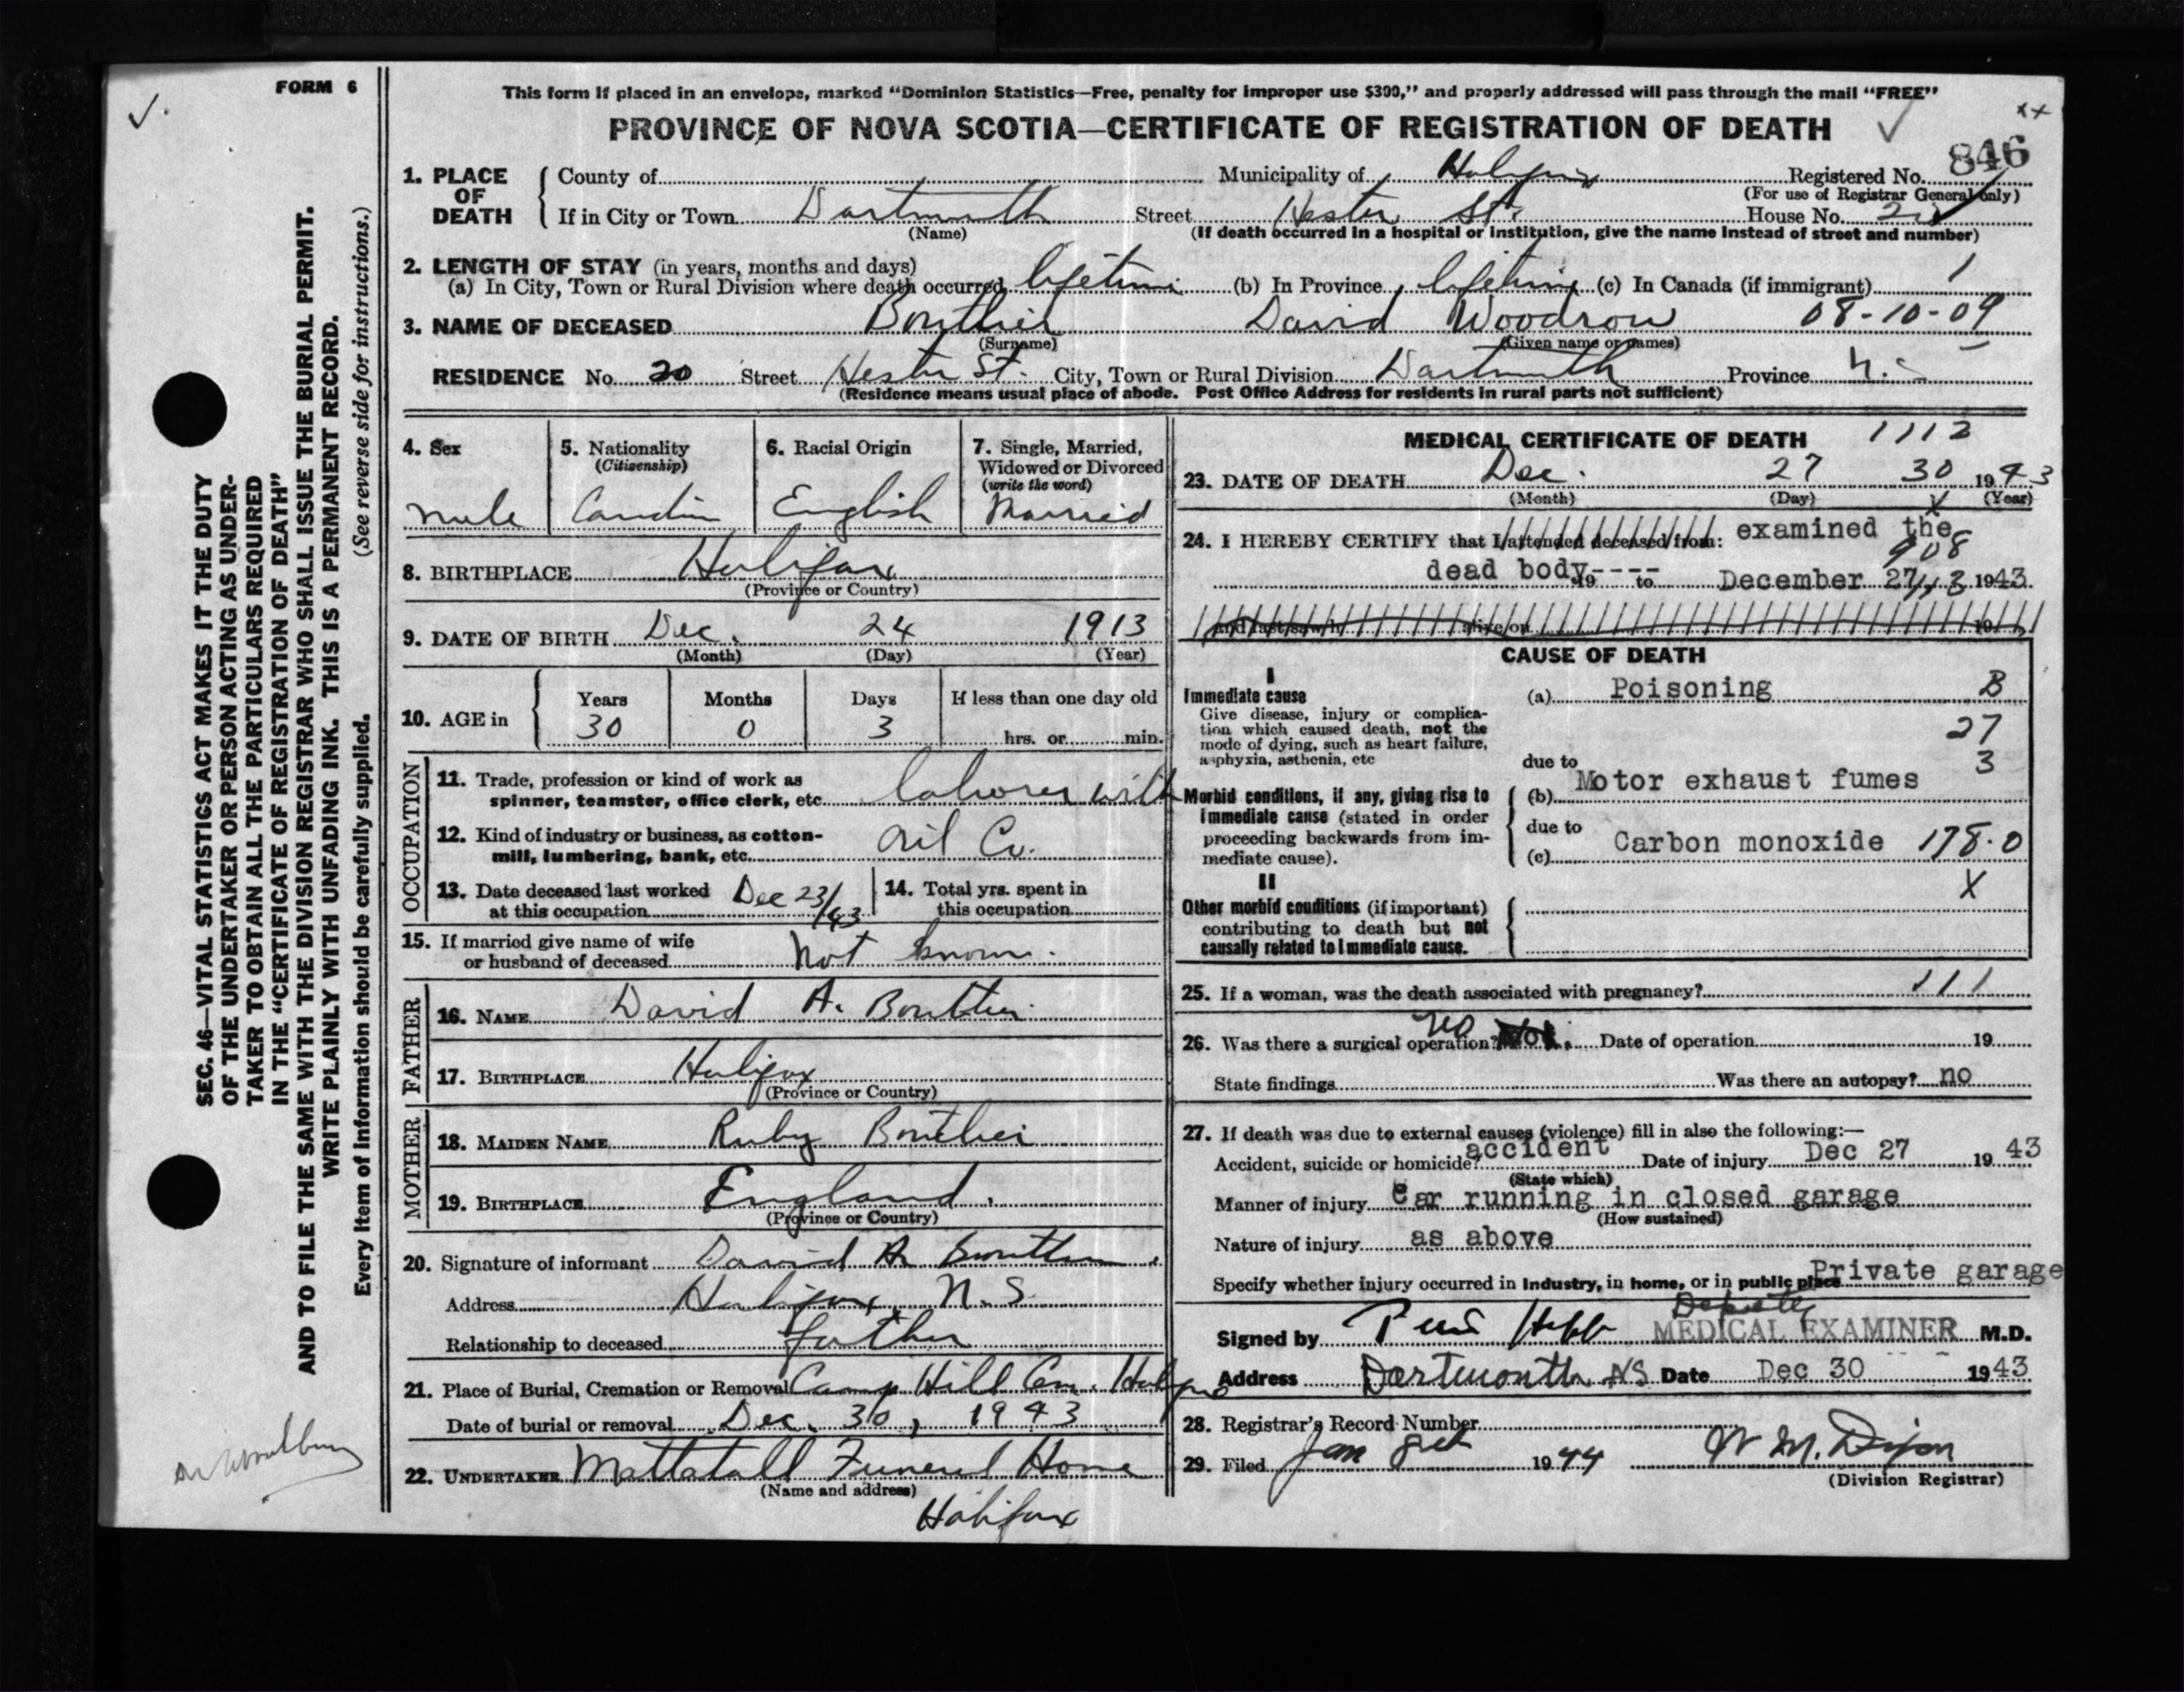 FORM 6
This form if placed in an envelope, marked "Dominion Statistics—Free, penalty for improper use $300," and properly addressed will pass through the mail "FREE"
PROVINCE OF NOVA SCOTIA—CERTIFICATE OF REGISTRATION OF DEATH
846
1. PLACE OF DEATH
County of Municipality of Halifax Registered No.
(For use of Registrar General only)
If in City or Town Dartmouth Street Hester St. House No.
(Name) (If death occurred in a hospital or institution, give the name instead of street and number)
2. LENGTH OF STAY (in years, months and days)
(a) In City, Town or Rural Division where death occurred lifetime (b) In Province lifetime (c) In Canada (if immigrant)
3. NAME OF DECEASED Boutilier David Woodrow 08-10-09
(Surname) (Given name or names)
RESIDENCE No. 20 Street Hester St. City, Town or Rural Division Dartmouth Province N.S
(Residence means usual place of abode. Post Office Address for residents in rural parts not sufficient)
4. Sex
male
5. Nationality
(Citizenship)
6. Racial Origin
English
7. Single, Married,
Widowed or Divorced
(write the word)
Married
8. BIRTHPLACE Halifax
(Province or Country)
9. DATE OF BIRTH Dec. 24 1913
(Month) (Day) (Year)
10. AGE in
Years Months Days If less than one day old
30 0 3 hrs. or min.
OCCUPATION
11. Trade, profession or kind of work as
spinner, teamster, office clerk, etc. laborer with
12. Kind of industry or business, as cotton-
mill, lumbering, bank, etc. Oil Co.
13. Date deceased last worked
at this occupation Dec 23/43
14. Total yrs. spent in
this occupation
15. If married give name of wife
or husband of deceased Not known.
FATHER
16. NAME David A. Boutilier
17. BIRTHPLACE Halifax
(Province or Country)
MOTHER
18. MAIDEN NAME Ruby Boutilier
19. BIRTHPLACE England.
(Province or Country)
20. Signature of informant David A Boutilier
Address Halifax, N.S.
Relationship to deceased father
21. Place of Burial, Cremation or Removal Camp Hill Cem. Halifax
Date of burial or removal Dec. 30, 1943
22. UNDERTAKER Mattatall Funeral Home
(Name and address)
Halifax
MEDICAL CERTIFICATE OF DEATH 1112
23. DATE OF DEATH Dec. 27 30 1943
(Month) (Day) X (Year)
24. I HEREBY CERTIFY that I attended deceased from: examined the
908
dead body---- 19 to December 27 1943
and last saw h alive on 19
CAUSE OF DEATH
I
Immediate cause
Give disease, injury or complica-
tion which caused death, not the
mode of dying, such as heart failure,
asphyxia, asthenia, etc
(a) Poisoning B
27
3
due to
(b) Motor exhaust fumes
Morbid conditions, if any, giving rise to
immediate cause (stated in order
proceeding backwards from im-
mediate cause).
due to
(c) Carbon monoxide 178.0
X
II
Other morbid conditions (if important)
contributing to death but not
causally related to immediate cause.
25. If a woman, was the death associated with pregnancy? 111
26. Was there a surgical operation? no Date of operation 19
State findings Was there an autopsy? no
27. If death was due to external causes (violence) fill in also the following:—
Accident, suicide or homicide? accident Date of injury Dec 27 1943
(State which)
Manner of injury Car running in closed garage
(How sustained)
Nature of injury as above
Specify whether injury occurred in industry, in home, or in public place Private garage
Deputy
Signed by MEDICAL EXAMINER M.D.
Address Dartmouth NS Date Dec 30 1943
28. Registrar's Record Number
29. Filed Jan 1944 W M. Dixon
(Division Registrar)
SEC. 46—VITAL STATISTICS ACT MAKES IT THE DUTY
OF THE UNDERTAKER OR PERSON ACTING AS UNDER-
TAKER TO OBTAIN ALL THE PARTICULARS REQUIRED
IN THE "CERTIFICATE OF REGISTRATION OF DEATH"
AND TO FILE THE SAME WITH THE DIVISION REGISTRAR WHO SHALL ISSUE THE BURIAL PERMIT.
WRITE PLAINLY WITH UNFADING INK. THIS IS A PERMANENT RECORD.
Every item of information should be carefully supplied. (See reverse side for instructions.)